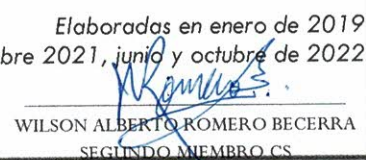 Elaboradas en enero de 2019
bre 2021, junio y octubre de 2022
WILSON ALBERTO ROMERO BECERRA
SEGUNDO MIEMBRO CS